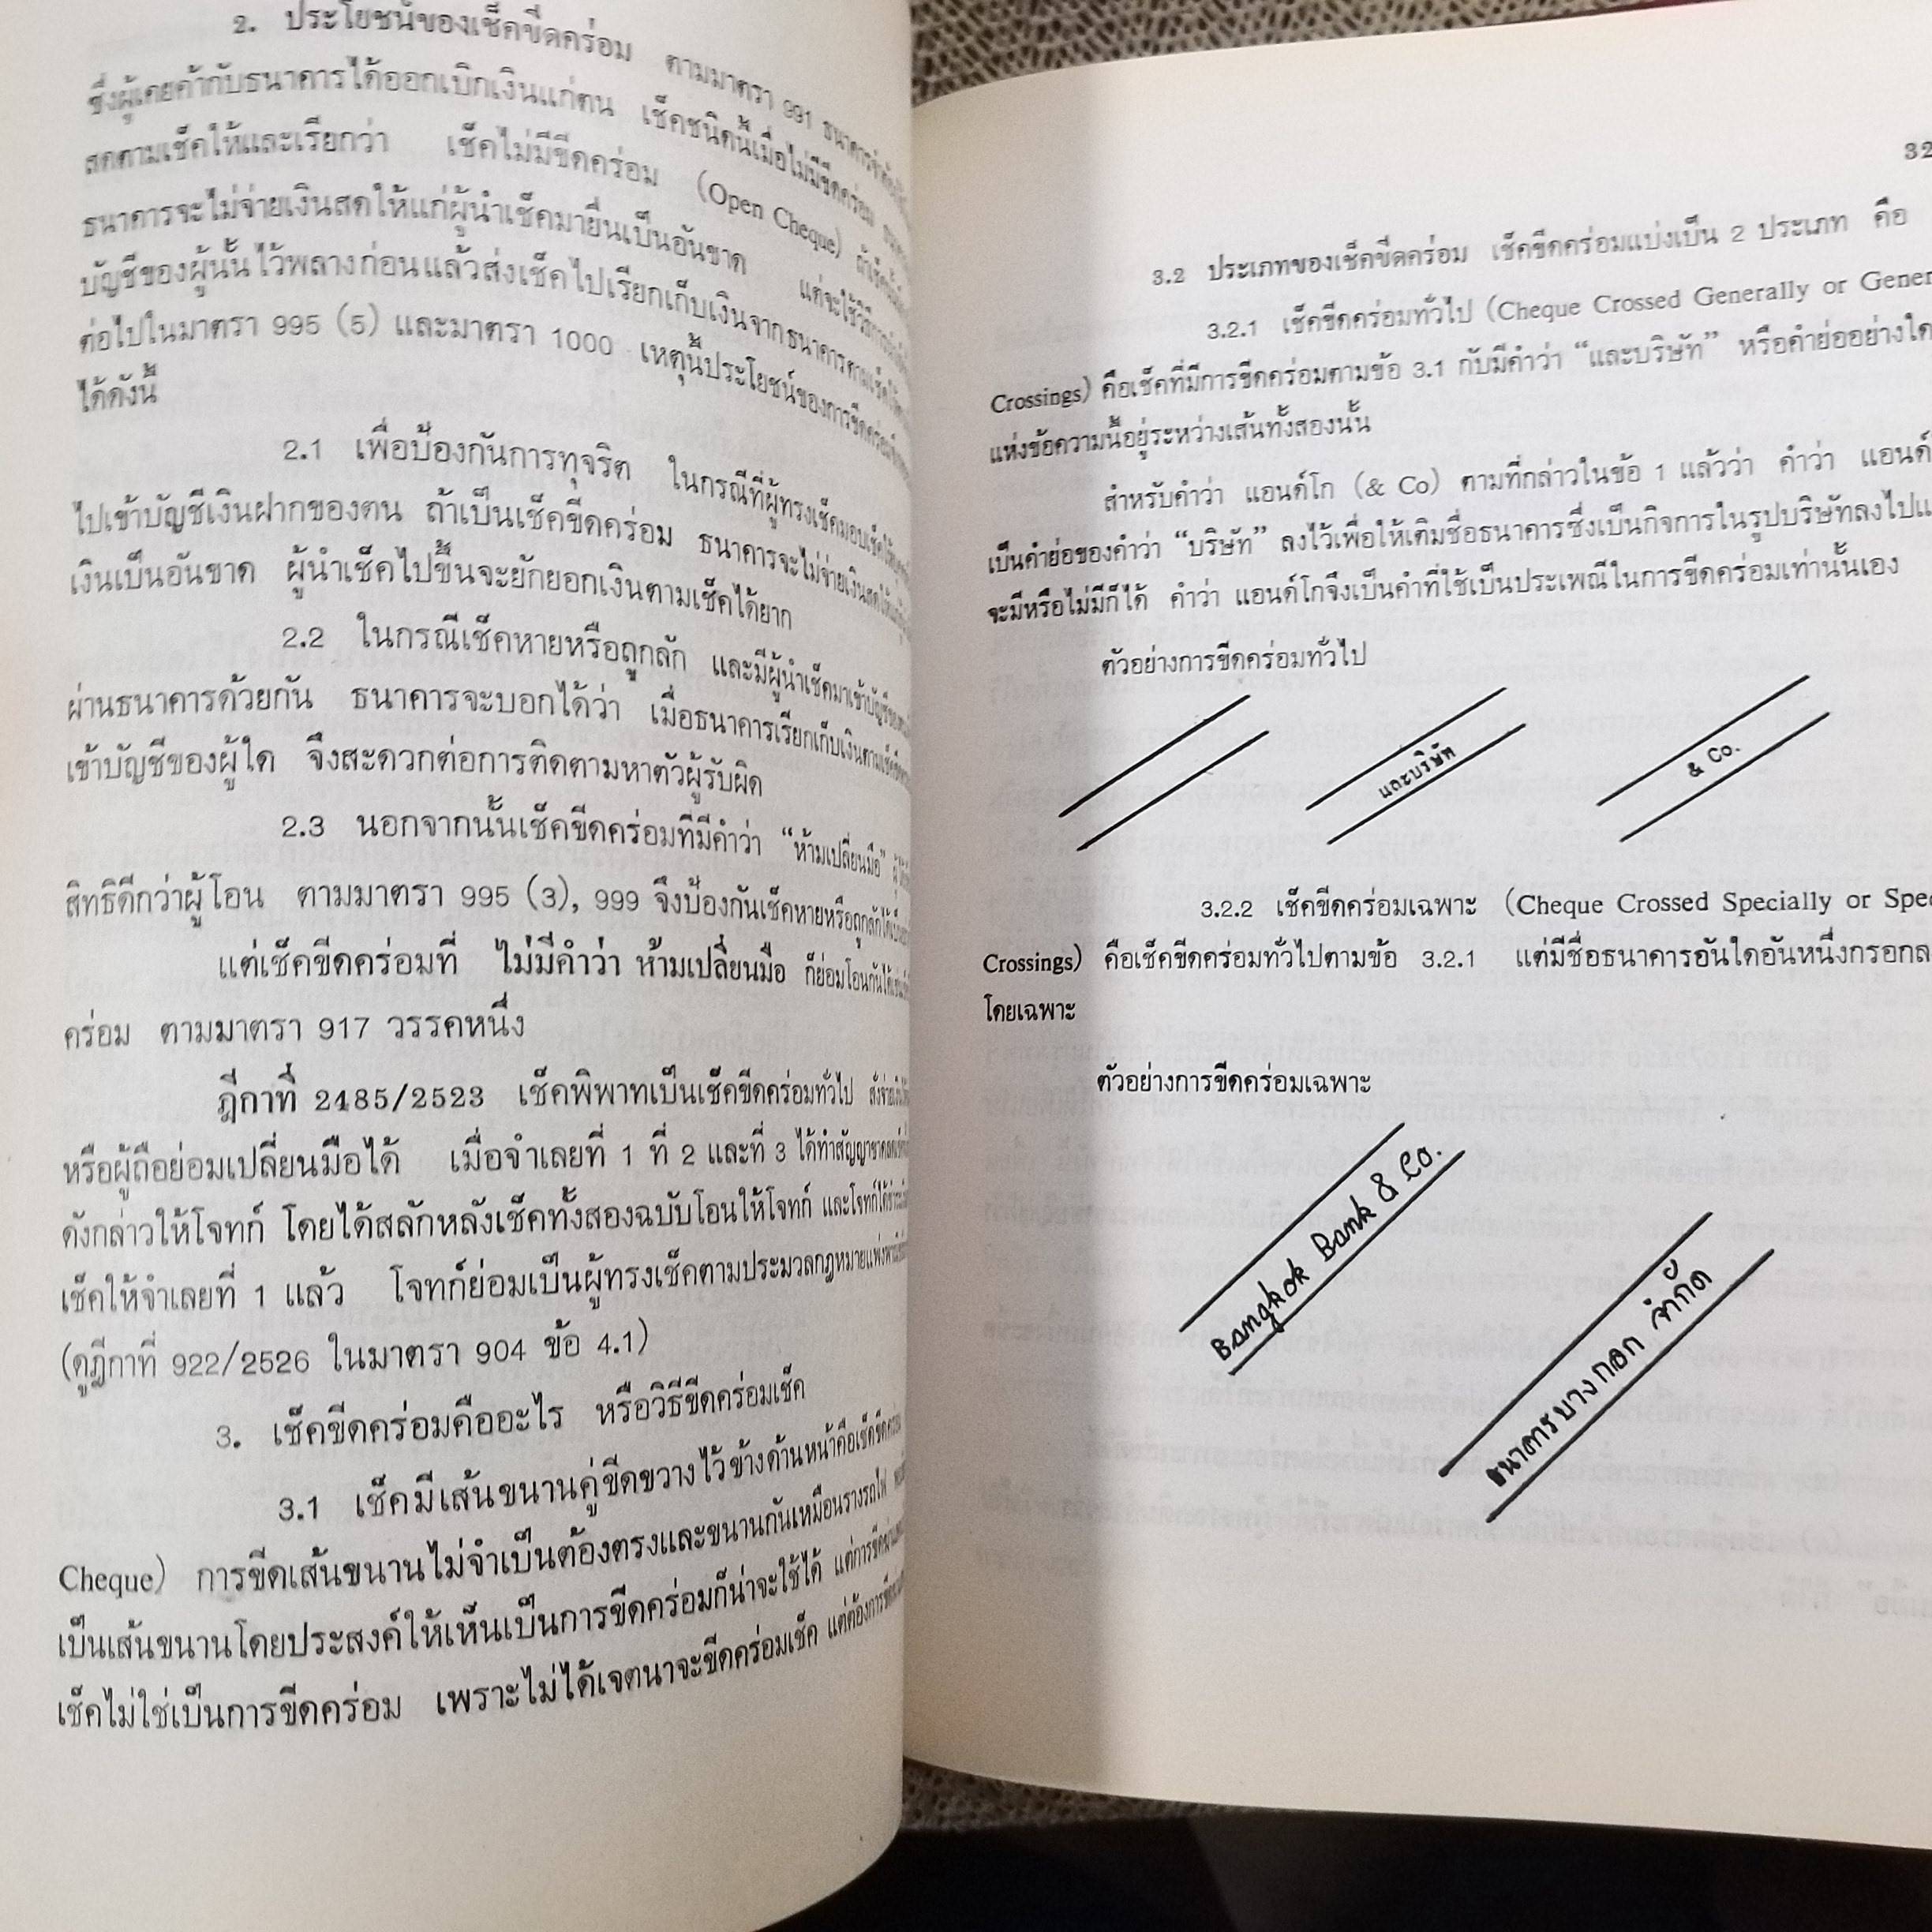 2. ประโยชน์ของเช็คขีดคร่อม ตามมาตรา 991
ซึ่งผู้เคยค้ากับธนาคารได้ออกเบิกเงินแก่ตน เช็คชนิดนี้เมื่อไม่มีขีดคร่อม
สดตามเช็คให้และเรียกว่า เช็คไม่มีขีดคร่อม (Open Cheque)
ธนาคารจะไม่จ่ายเงินสดให้แก่ผู้นำเช็คมายื่นเป็นอันขาด แต่จะใช้วิธีการ
บัญชีของผู้นั้นไว้พลางก่อนแล้วส่งเช็คไปเรียกเก็บเงินจากธนาคารตามเช็ค
ต่อไปในมาตรา 995 (5) และมาตรา 1000 เหตุนี้ประโยชน์ของการขีดคร่อม
ได้ดังนี้
2.1 เพื่อป้องกันการทุจริต ในกรณีที่ผู้ทรงเช็คมอบเช็คให้
ไปเข้าบัญชีเงินฝากของตน ถ้าเป็นเช็คขีดคร่อม ธนาคารจะไม่จ่ายเงินสด
เงินเป็นอันขาด ผู้นำเช็คไปขึ้นจะยักยอกเงินตามเช็คได้ยาก
2.2 ในกรณีเช็คหายหรือถูกลัก และมีผู้นำเช็คมาเข้าบัญชี
ผ่านธนาคารด้วยกัน ธนาคารจะบอกได้ว่า เมื่อธนาคารเรียกเก็บเงินตามเช็ค
เข้าบัญชีของผู้ใด จึงสะดวกต่อการติดตามหาตัวผู้รับผิด
2.3 นอกจากนั้นเช็คขีดคร่อมที่มีคำว่า "ห้ามเปลี่ยนมือ"
สิทธิดีกว่าผู้โอน ตามมาตรา 995 (3), 999 จึงป้องกันเช็คหายหรือถูกลักได้
แต่เช็คขีดคร่อมที่ ไม่มีคำว่า ห้ามเปลี่ยนมือ ก็ย่อมโอนกันได้
คร่อม ตามมาตรา 917 วรรคหนึ่ง
ฎีกาที่ 2485/2523 เช็คพิพาทเป็นเช็คขีดคร่อมทั่วไป
หรือผู้ถือย่อมเปลี่ยนมือได้ เมื่อจำเลยที่ 1 ที่ 2 และที่ 3 ได้ทำสัญญา
ดังกล่าวให้โจทก์ โดยได้สลักหลังเช็คทั้งสองฉบับโอนให้โจทก์ และโจทก์ได้
เช็คให้จำเลยที่ 1 แล้ว โจทก์ย่อมเป็นผู้ทรงเช็คตามประมวลกฎหมายแพ่ง
(ดูฎีกาที่ 922/2526 ในมาตรา 904 ข้อ 4.1)
3. เช็คขีดคร่อมคืออะไร หรือวิธีขีดคร่อมเช็ค
3.1 เช็คมีเส้นขนานคู่ขีดขวางไว้ข้างด้านหน้าคือเช็คขีดคร่อม
Cheque) การขีดเส้นขนานไม่จำเป็นต้องตรงและขนานกันเหมือนรางรถไฟ
เป็นเส้นขนานโดยประสงค์ให้เห็นเป็นการขีดคร่อมก็น่าจะใช้ได้ แต่การขีด
เช็คไม่ใช่เป็นการขีดคร่อม เพราะไม่ได้เจตนาจะขีดคร่อมเช็ค แต่ต้องการ
32
3.2 ประเภทของเช็คขีดคร่อม เช็คขีดคร่อมแบ่งเป็น 2 ประเภท คือ
3.2.1 เช็คขีดคร่อมทั่วไป (Cheque Crossed Generally or Gener
Crossings) คือเช็คที่มีการขีดคร่อมตามข้อ 3.1 กับมีคำว่า "และบริษัท" หรือคำย่ออย่างใด
แห่งข้อความนี้อยู่ระหว่างเส้นทั้งสองนั้น
สำหรับคำว่า แอนด์โก (& Co) ตามที่กล่าวในข้อ 1 แล้วว่า คำว่า แอนด์
เป็นคำย่อของคำว่า "บริษัท" ลงไว้เพื่อให้เติมชื่อธนาคารซึ่งเป็นกิจการในรูปบริษัทลงไป
จะมีหรือไม่มีก็ได้ คำว่า แอนด์โกจึงเป็นคำที่ใช้เป็นประเพณีในการขีดคร่อมเท่านั้นเอง
ตัวอย่างการขีดคร่อมทั่วไป
และบริษัท
& Co.
3.2.2 เช็คขีดคร่อมเฉพาะ (Cheque Crossed Specially or Spe
Crossings) คือเช็คขีดคร่อมทั่วไปตามข้อ 3.2.1 แต่มีชื่อธนาคารอันใดอันหนึ่งกรอกล
โดยเฉพาะ
ตัวอย่างการขีดคร่อมเฉพาะ
Bangkok Bank & Co.
ธนาคารบางกอก จำกัด